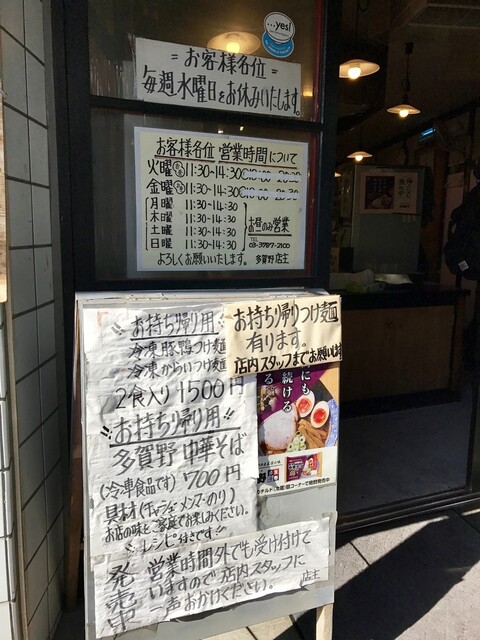 ...yes!
=お客様各位=
毎週水曜日をお休みいたします。
お客様各位 営業時間について
火曜 11:30~14:30
金曜 11:30~14:30
月曜 11:30~14:30
木曜 11:30~14:30
土曜 11:30~14:30
日曜 11:30~14:30
お昼のみ営業
TEL 03-3787-2100
よろしくお願いいたします。 多賀野 店主
お持ち帰り用
冷凍豚鴨つけ麺
冷凍からいつけ麺
2食入り1500円
お持ち帰りつけ麺
有ります。
店内スタッフまでお願いします
にも
続ける
お持ち帰り用!!
多賀野 中華そば
(冷凍食品です)700円
具材(チャーシュー・メンマ・のり)
お店の味をご家庭でお楽しみください。
レシピ付きです!!
発売中
営業時間外でも受け付けて
いますので店内スタッフに
一声おかけください。 店主